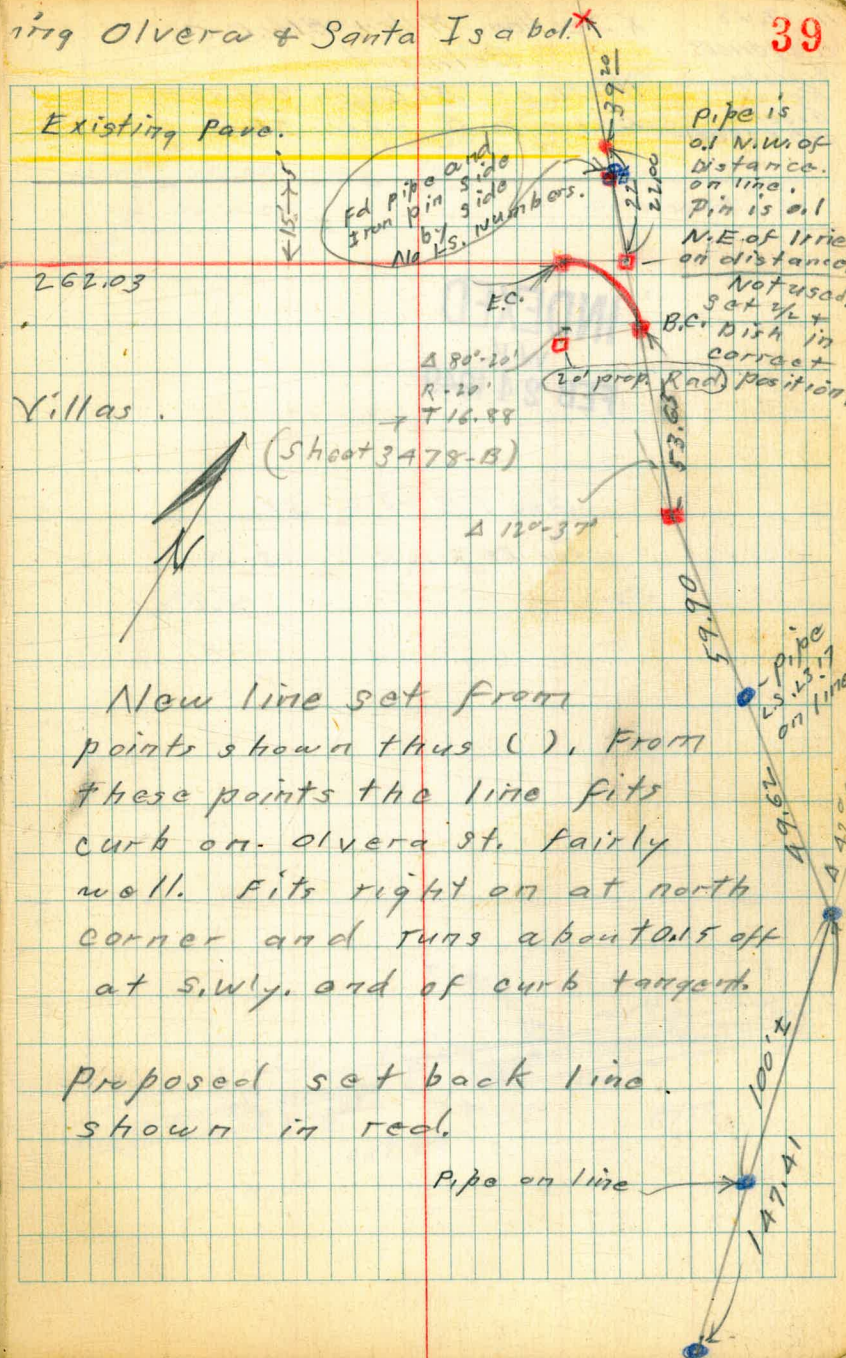 ing Olvera & Santa Isabel.
39
Existing Pave.
←15→5'
Fd pipe and
Iron pin side
by side
No L.S. Numbers.
39.20
22
22.00
pipe is
0.1 N.W. of
Distance.
on line.
Pin is 0.1
N.E. of line
on distance
Not used.
Set 2/2 +
Dish in
correct
position
262.03
E.C.
B.C.
Δ 80°-20'
R - 20'
T 16.88
20' prop. Rad.
Villas.
(Sheet 3478-B)
53.63
Δ 12°-37'
N
59.90
pipe
L.S. 2317
on line
49.62
New line set from
points shown thus ( ). From
these points the line fits
curb on. Olvera St. fairly
well. Fits right on at north
corner and runs about 0.15 off
at S.W'ly. end of curb tangent.
100'±
Proposed set back line.
shown in red.
Pipe on line
147.41